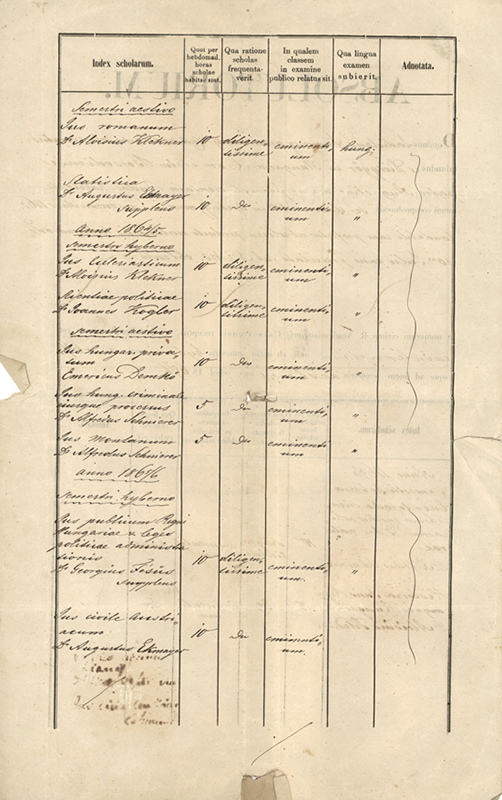 Index scholarum.
Quot per hebdomad. horas scholae habitae sint.
Qua ratione scholas frequentaverit.
In qualem classem in examine publico relatus sit.
Qua lingua examen subierit.
Adnotata.
Semestri aestivo
Jus romanum
Dr Aloisius Klekner 10 diligentissime eminentium hung.
Statistica
Dr Augustus Ekmayer
Supplens 10 do eminentium "
Anno 1864/5
Semestri hyberno
Jus
Dr Aloisius Klekner 10 diligentissime eminentium "
Scientiae politicae
Dr Joannes Kogler 10 diligentissime eminentium "
Semestri aestivo
Jus hungar. privatum
Emericus Demkó 10 do eminentium "
Jus hung. criminale
eiusque processus
Dr Alfredus Schnierer 5 do eminentium "
Jus Montanum
Dr Alfredus Schnierer 5 do eminentium "
anno 1865/6
Semestri hyberno
Jus publicum Regni
Hungariae &
politicae administrationis
Dr Georgius
Supplens 10 diligentissime eminentium. "
Jus civile austriacum
Dr Augustus Ekmayer 10 do eminentium.